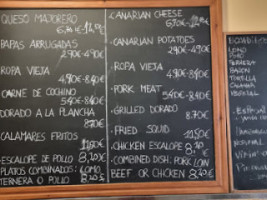 QUESO MAJORERO
PAPAS ARRUGADAS
2,90€-4,90€
ROPA VIEJA
4,90€-8,40€
CARNE DE COCHINO
5,40€-8,40€
DORADO A LA PLANCHA
8,70€
CALAMARES FRITOS
ESCALOPE DE POLLO 8,20€
PLATOS COMBINADOS: LOMO,
TERNERA O POLLO 8,20€
CANARIAN CHEESE
CANARIAN POTATOES
2,90€-4,90€
ROPA VIEJA
4,90€-8,40€
PORK MEAT
5,40€-8,40€
GRILLED DORADO
8,70€
FRIED SQUID
CHICKEN ESCALOPE 8,20€
COMBINED DISH: PORK LOIN
BEEF OR CHICKEN 8,20€
LOMO
TERNERA
BACON
TORTILLA